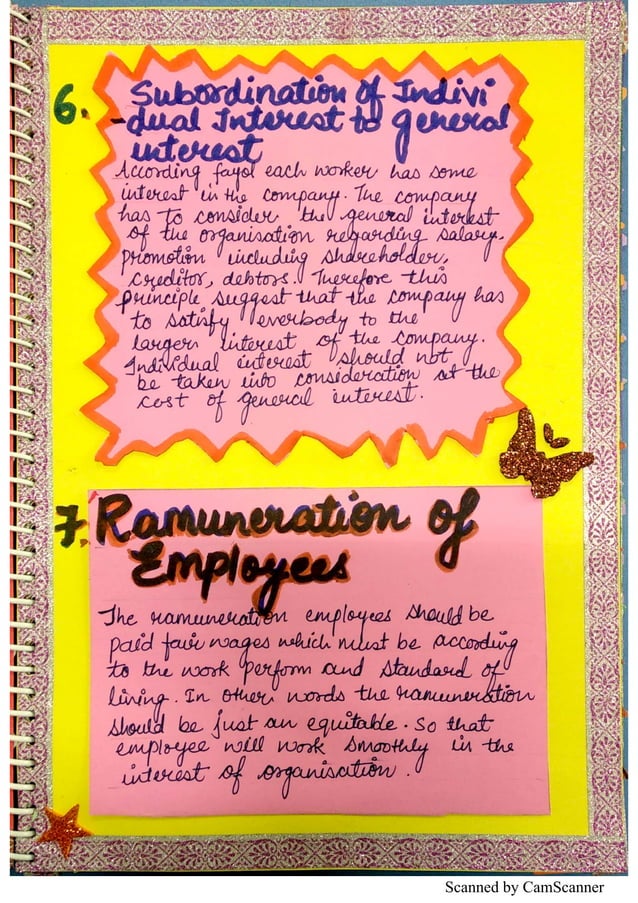 6.
Subordination of Indivi
-dual Interest to general
interest
According fayol each worker has some
interest in the company. The company
has to consider the general interest
of the organisation regarding salary.
promotion including shareholder,
creditor, debtors. Therefore this
principle suggest that the company has
to satisfy everbody to the
larger interest of the company.
Individual interest should not
be taken into consideration at the
cost of general interest.
7.
Ramuneration of
Employees
The ramuneration employees should be
paid fair wages which must be according
to the work perform and standard of
living. In other words the ramuneration
should be just an equitable. So that
employee will work smoothly in the
interest of organisation.
Scanned by CamScanner